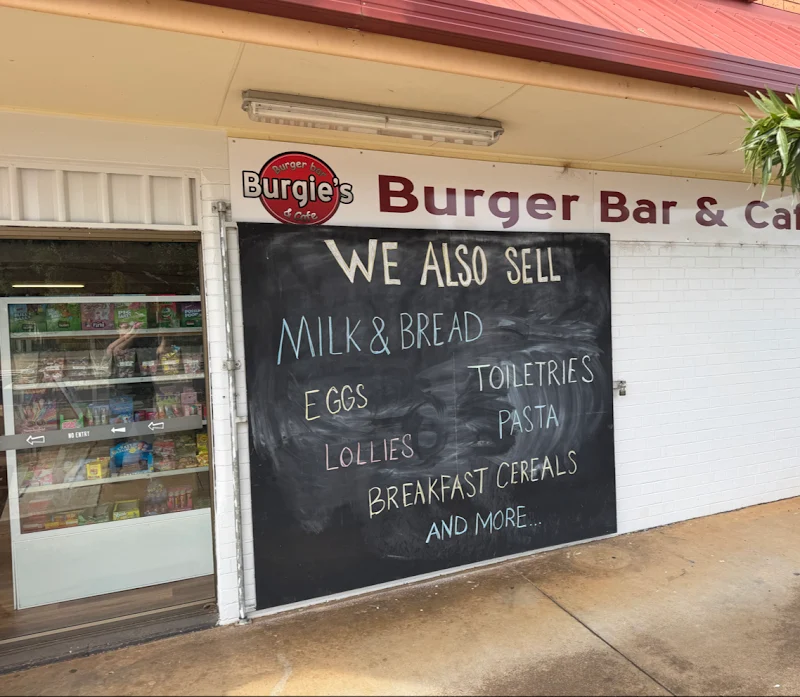 Burger bar
Burgie's
& Cafe
Burger Bar & Caf
WE ALSO SELL
MILK & BREAD
EGGS
TOILETRIES
LOLLIES
PASTA
BREAKFAST CEREALS
AND MORE...
NO ENTRY